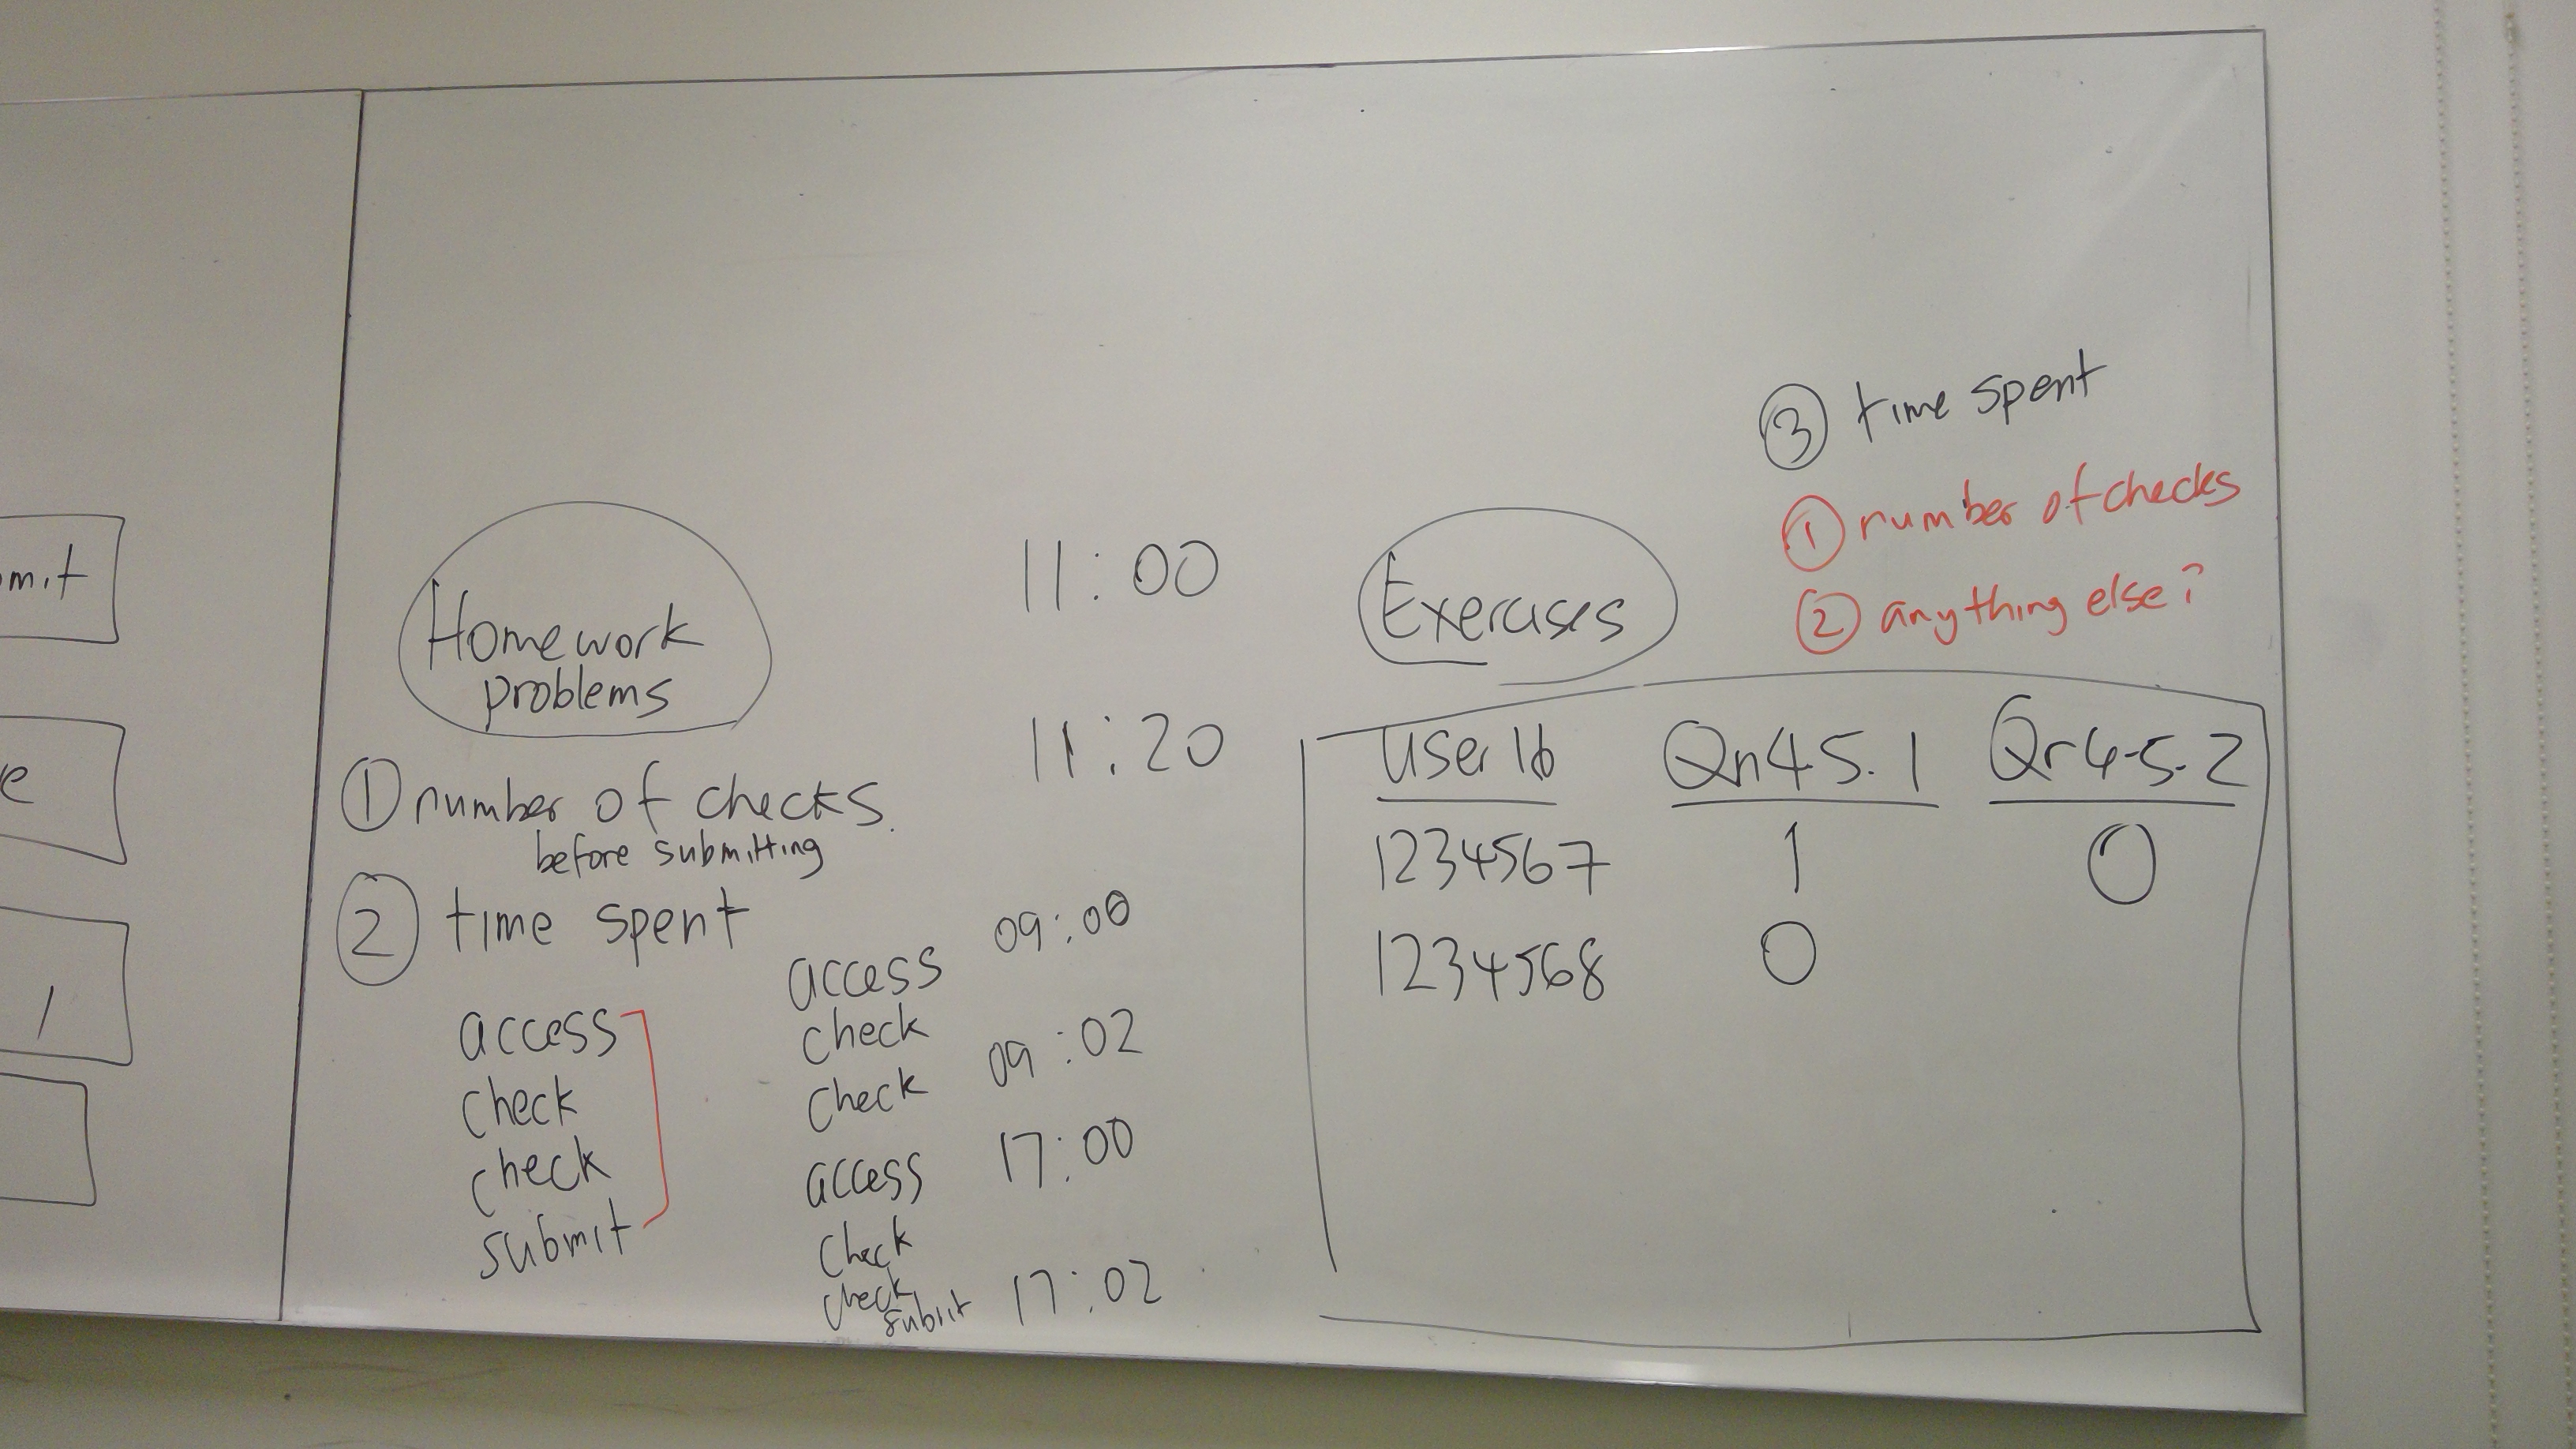 mit
e
/
Homework
problems
① number of checks.
before submitting
② time spent
access
check
check
submit
11:00
11:20
access 09:00
check
check 09:02
access 17:00
check
check
submit 17:02
Exercises
③ time spent
① number of checks
② anything else?
User ID Qn4.5.1 Qn4.5.2
1234567 1 0
1234568 0